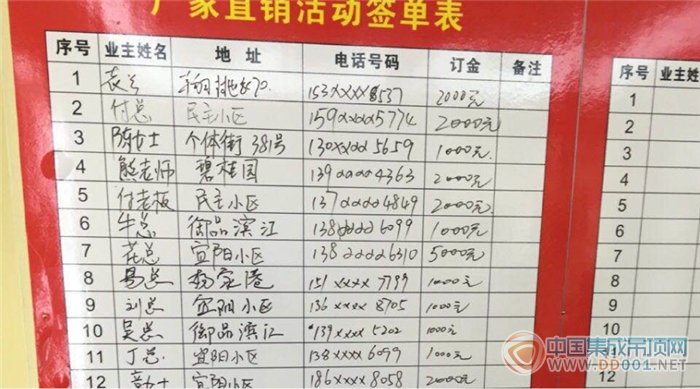 厂家直销活动签单表
序号 业主姓名 地 址 电话号码 订金 备注
1 袁总 153xxxx8537 2000元
2 付总 民主小区 159xxxx5774 2000元
3 陈女士 个体街381号 130xxxx5659 1000元
4 熊老师 碧桂园 139xxxx4363 2000元
5 付老板 民主小区 137xxxx4849 2000元
6 牛总 御品滨江 138xxxx6099 1000元
7 花总 宜阳小区 138xxxx6310 5000元
8 易总 杨家港 151xxxx7799 1000元
9 刘总 宜阳小区 136xxxx8705 1000元
10 吴总 御品滨江 139xxxx5202 1000元
11 丁总 宜阳小区 138xxxx6099 1000元
12 宜阳小区 186xxxx8058 2000元
序号 业主姓名
1
2
3
4
5
6
7
8
9
12
中国集成吊顶网
WWW.DD001.NET